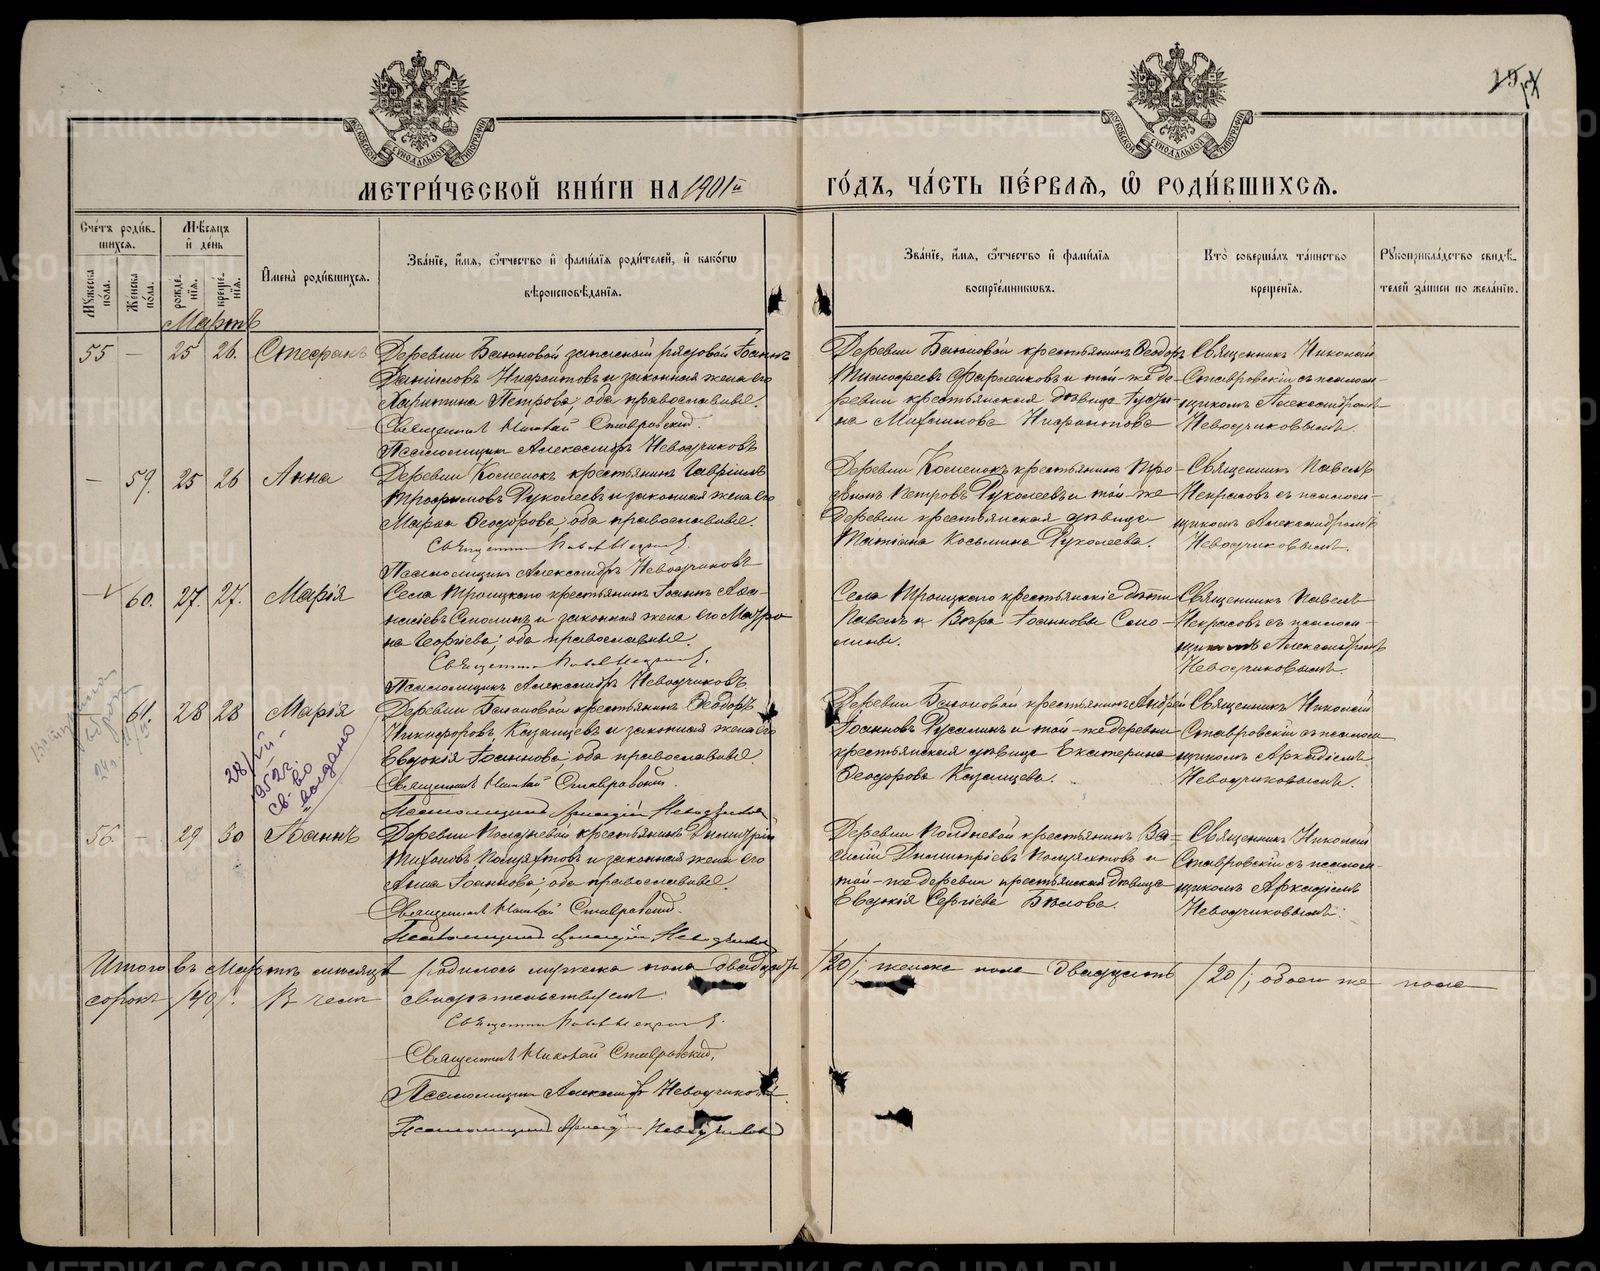 МЕТРИ́ЧЕСКОЙ КНИ́ГИ НА 1901й ГО́ДЪ, ЧА́СТЬ ПЕ́РВАЯ, Ѽ РОДИ́ВШИХСЯ.
Счетъ роди́в-
шихся.
Мꙋ́жеска по́ла.
Же́нска по́ла.
Мѣ́сяцъ
и҆ де́нь
рожде́нїя.
креще́нїя.
И҆мена̀ роди́вшихся.
Зва́нїе, и҆́мя, ѻ҆́тчество и҆ фами́лїя роди́телей, и҆ како́гѡ
вѣроисповѣ́данїя.
Зва́нїе, и҆́мя, ѻ҆́тчество и҆ фами́лїя
воспрїе́мникѡвъ.
Кто̀ соверша́лъ та́инство
креще́нїя.
Рꙋкоприкла́дство свидѣ́-
телей за́писи по жела́нїю.
Мартъ
55 — 25 26. Стефанъ
Деревни Баюновой запасной рядовой Іоаннъ
Даніиловъ Нифонтовъ и законная жена его
Харитина Петрова, оба православные.
Священникъ Николай Ставровскій.
Псаломщикъ Александръ Неводчиковъ
Деревни Баюновой крестьянинъ Ѳеодоръ
Тимофеевъ и той-же де-
ревни крестьянская дѣвица
на Михайлова Нифонтова
Священникъ Николай
Ставровскій съ псалом-
щикомъ Александромъ
Неводчиковымъ.
— 59. 25 26 Анна
Деревни Космакъ крестьянинъ Гавріилъ
Трофимовъ Рукомеевъ и законная жена его
Марѳа Ѳеодорова, оба православные.
Священникъ Павелъ Некрасовъ.
Псаломщикъ Александръ Неводчиковъ
крестьянинъ
Петровъ и той-же
деревни крестьянская дѣвица
Татіана Косьмина
Священникъ Павелъ
Некрасовъ съ псалом-
щикомъ Александромъ
Неводчиковымъ.
— 60. 27. 27. Марія
Села Троицкаго крестьянинъ Іоаннъ Аѳа-
насіевъ Смолинъ и законная жена его Матро-
на Георгіева, оба православные.
Священникъ Павелъ Некрасовъ.
Псаломщикъ Александръ Неводчиковъ
Села Троицкаго крестьянскіе дѣти
Павелъ и Вѣра Іоанновы Смо-
лины.
Священникъ Павелъ
Некрасовъ съ псалом-
щикомъ Александромъ
Неводчиковымъ.
— 61. 28 28 Марія
Деревни Баюновой крестьянинъ Ѳеодоръ
Никифоровъ Казанцевъ и законная жена его
Евдокія Іоаннова, оба православные.
Священникъ Николай Ставровскій.
Псаломщикъ Аркадій Неводчиковъ
28/III-
1952г.
св-во
выдано
Деревни Баюновой крестьянинъ Андрей
Іоанновъ Русалинъ и той-же деревни
крестьянская дѣвица Екатерина
Ѳеодорова Казанцева.
Священникъ Николай
Ставровскій съ псалом-
щикомъ Аркадіемъ
Неводчиковымъ.
56. — 29 30 Іоаннъ
Деревни Полдневой крестьянинъ Димитрій
Тихоновъ и законная жена его
Анна Іоаннова, оба православные.
Священникъ Николай Ставровскій.
Псаломщикъ Аркадій Неводчиковъ
Деревни Полдневой крестьянинъ Ва-
силій Димитріевъ и
той-же деревни крестьянская дѣвица
Евдокія Сергіева Бѣлова.
Священникъ Николай
Ставровскій съ псалом-
щикомъ Аркадіемъ
Неводчиковымъ.
Итого въ Мартѣ мѣсяцѣ родилось мужска пола двадцать /20/, женска пола двадцать /20/; обоего же пола
сорокъ /40/. Въ чемъ свидѣтельствуемъ:
Священникъ Павелъ Некрасовъ.
Священникъ Николай Ставровскій.
Псаломщикъ Александръ Неводчиковъ.
Псаломщикъ Аркадій Неводчиковъ
METRIKI.GASO-URAL.RU